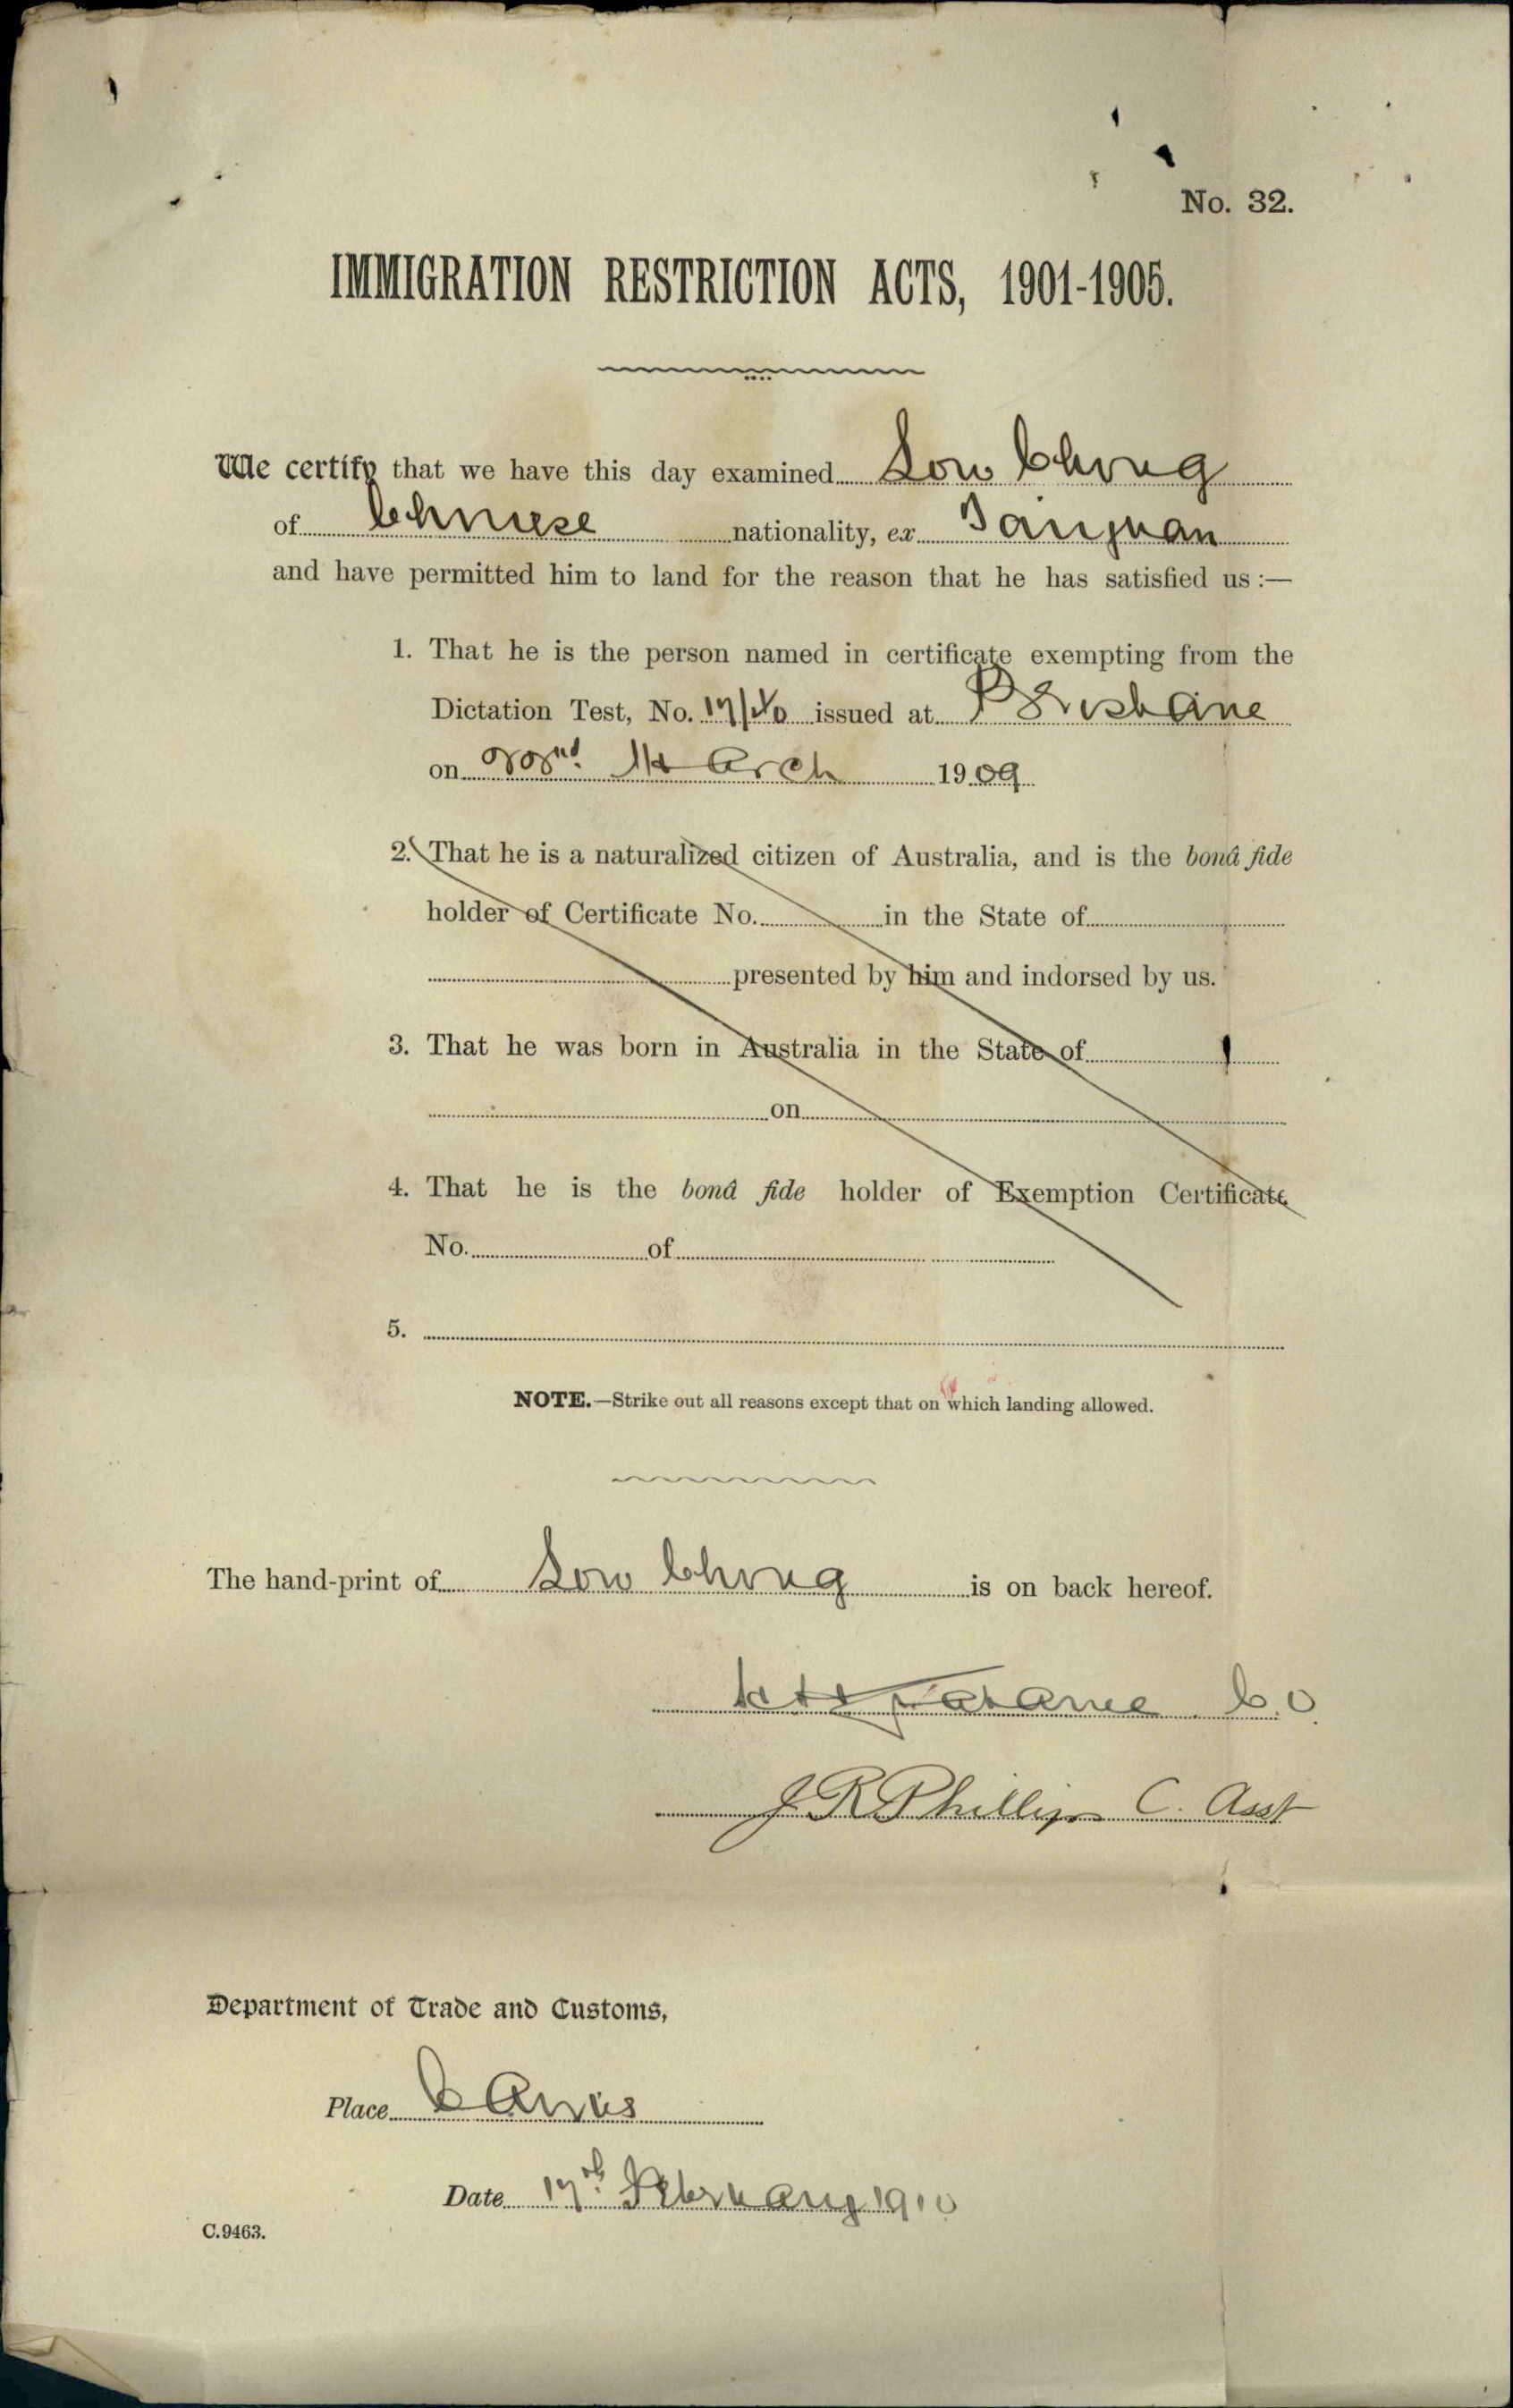 No. 32.
IMMIGRATION RESTRICTION ACTS, 1901-1905.
We certify that we have this day examined Sow Chong
of Chinese nationality, ex Taiyuan
and have permitted him to land for the reason that he has satisfied us :—
1. That he is the person named in certificate exempting from the
Dictation Test, No. issued at Brisbane
on 22nd. March 1909
2. That he is a naturalized citizen of Australia, and is the bonâ fide
holder of Certificate No. in the State of
presented by him and indorsed by us.
3. That he was born in Australia in the State of
on
4. That he is the bonâ fide holder of Exemption Certificate
No. of
5.
NOTE.—Strike out all reasons except that on which landing allowed.
The hand-print of Sow Chong is on back hereof.
C.O.
J R Phillips C. Asst
Department of Trade and Customs,
Place Cairns
Date 17th. February 1910
C.9463.